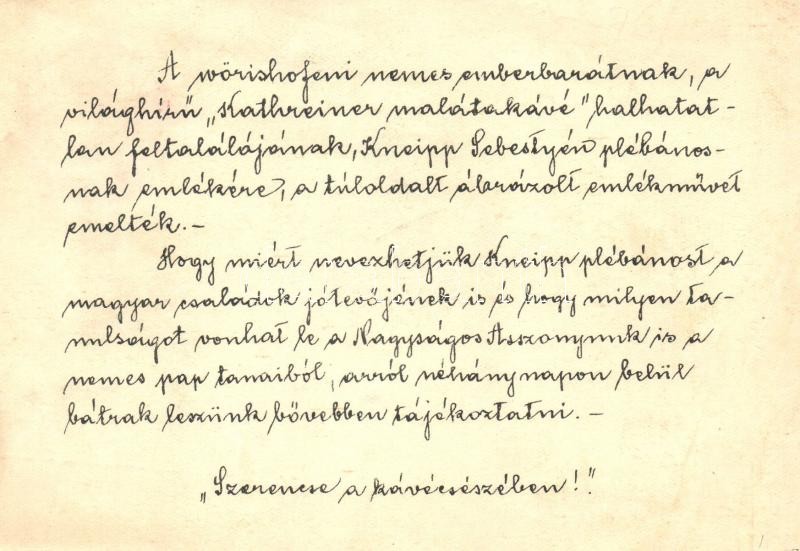 A wörishofeni nemes emberbarátnak, a
világhírű „Kathreiner malátakávé" halhatat-
lan feltalálójának, Kneipp Sebestyén plébános-
nak emlékére, a túloldalt ábrázolt emlékművet
emelték. –
Hogy miért nevezhetjük Kneipp plébánost a
magyar családok jótevőjének is és hogy milyen ta-
nulságot vonhat le a Nagyságos Asszonyunk is a
nemes pap tanaiból, arról néhány napon belül
bátrak leszünk bővebben tájékoztatni. –
„Szerencse a kávécsészében!".